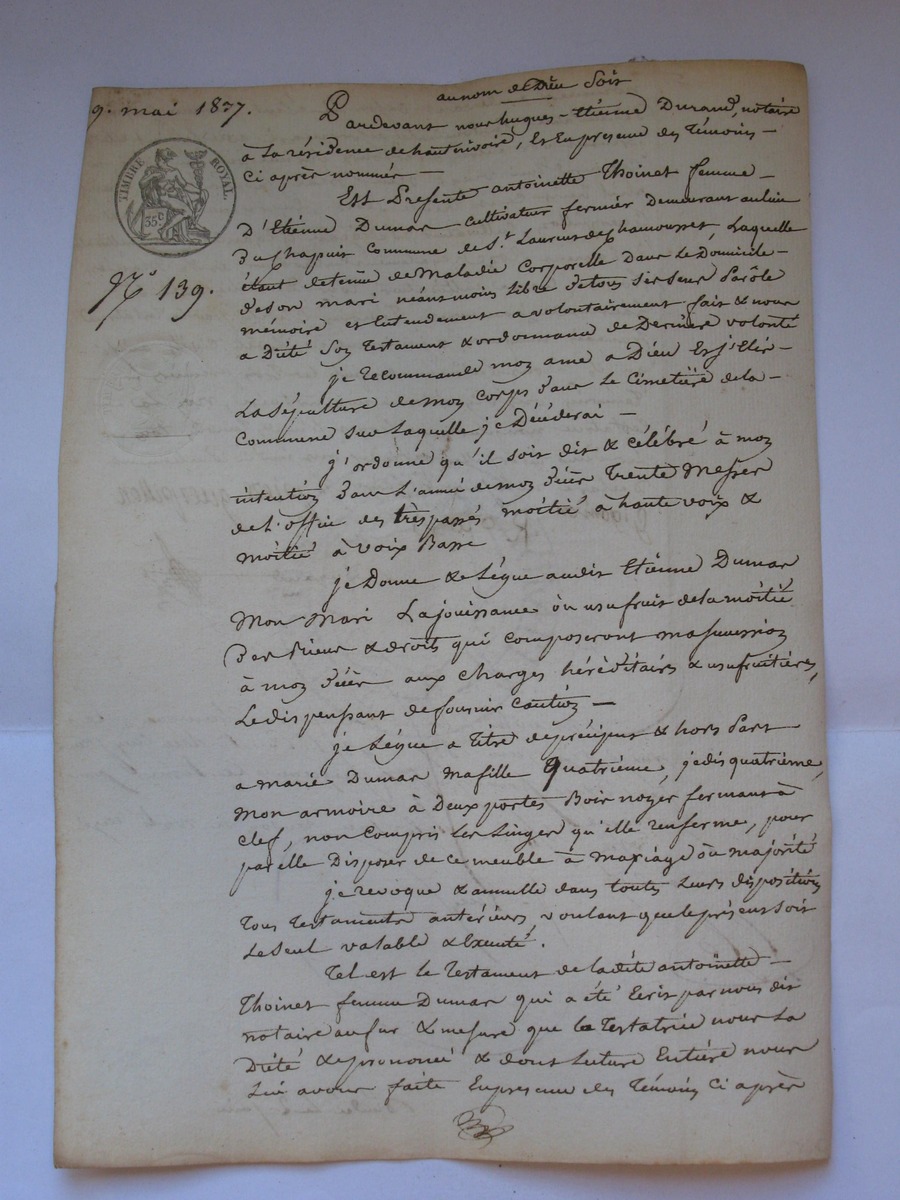 9. mai 1837.
au nom de Dieu Soit
Pardevant nous hugues-Etienne Durand, notaire
à La résidence de hauterivoire, Et En presence des Témoins —
Ci après nommés —
TIMBRE ROYAL.
35c
N.o 139.
Est Presente antoinette Thoinet femme —
D'Etienne Dumas cultivateur fermier Demeurant au lieu
Du Chapuis Commune de St. Laurent de Chamousset, Laquelle
étant detenue de Maladie Corporelle Dans Le Domicile —
de son mari néantmoins libre de tous ses sens Parôle
mémoire et Entendement a volontairement fait & nous
a Dicté Son Testament & ordonnance de Dernière volonté
je recommande mon ame a Dieu Et j'Elis —
La Sépulture de mon corps Dans Le Cimetière de la —
Commune sur Laquelle je Décéderai —
j'ordonne qu'il soit dit & célébré à mon
intention Dans L'année de mon Décès Trente Messes
de L'office des trèspassés moitié à haute voix &
moitié à voix Basse
je Donne & Légue audit Etienne Dumas
Mon Mari La jouissance ou usufruit de la moitié
Des Biens & droits qui composeront ma succession
à mon Décès aux Charges héréditaires & usufruitières,
Le dispensant de fournir Caution —
je Légue a Titre de préciput & hors Part
a marie Dumas ma fille Quatrième, je dis quatrième,
Mon armoire à Deux portes Bois noyer fermant à
clef, non Compris Les Linges qu'elle renferme, pour
par elle Disposer de ce meuble à mariage ou majorité
je revoque & annulle dans toutes Leurs dispositions
Tous Testaments antérieurs, voulant que le présent Soit
Le Seul valable & Executé.
Tel est Le Testament de ladite antoinette —
Thoinet femme Dumas qui a été Ecrit par nous dit
notaire au fur & mesure que la Testatrice nous La
Dicté & prononcé & dont Lecture Entière nous
Lui avons faite En presence des Témoins Ci après